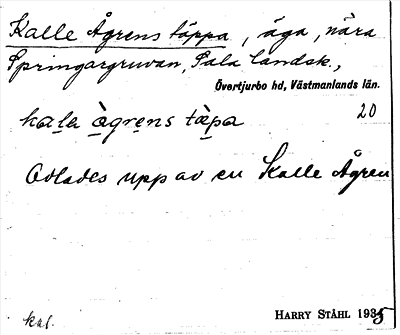 Kalle Ågrens täppa, äga, nära
Springargruvan, Sala landsk.,
Övertjurbo hd, Västmanlands län.
kala àgrens tàpa 20
Odlades upp av en Kalle Ågren
kal.
HARRY STÅHL 1935